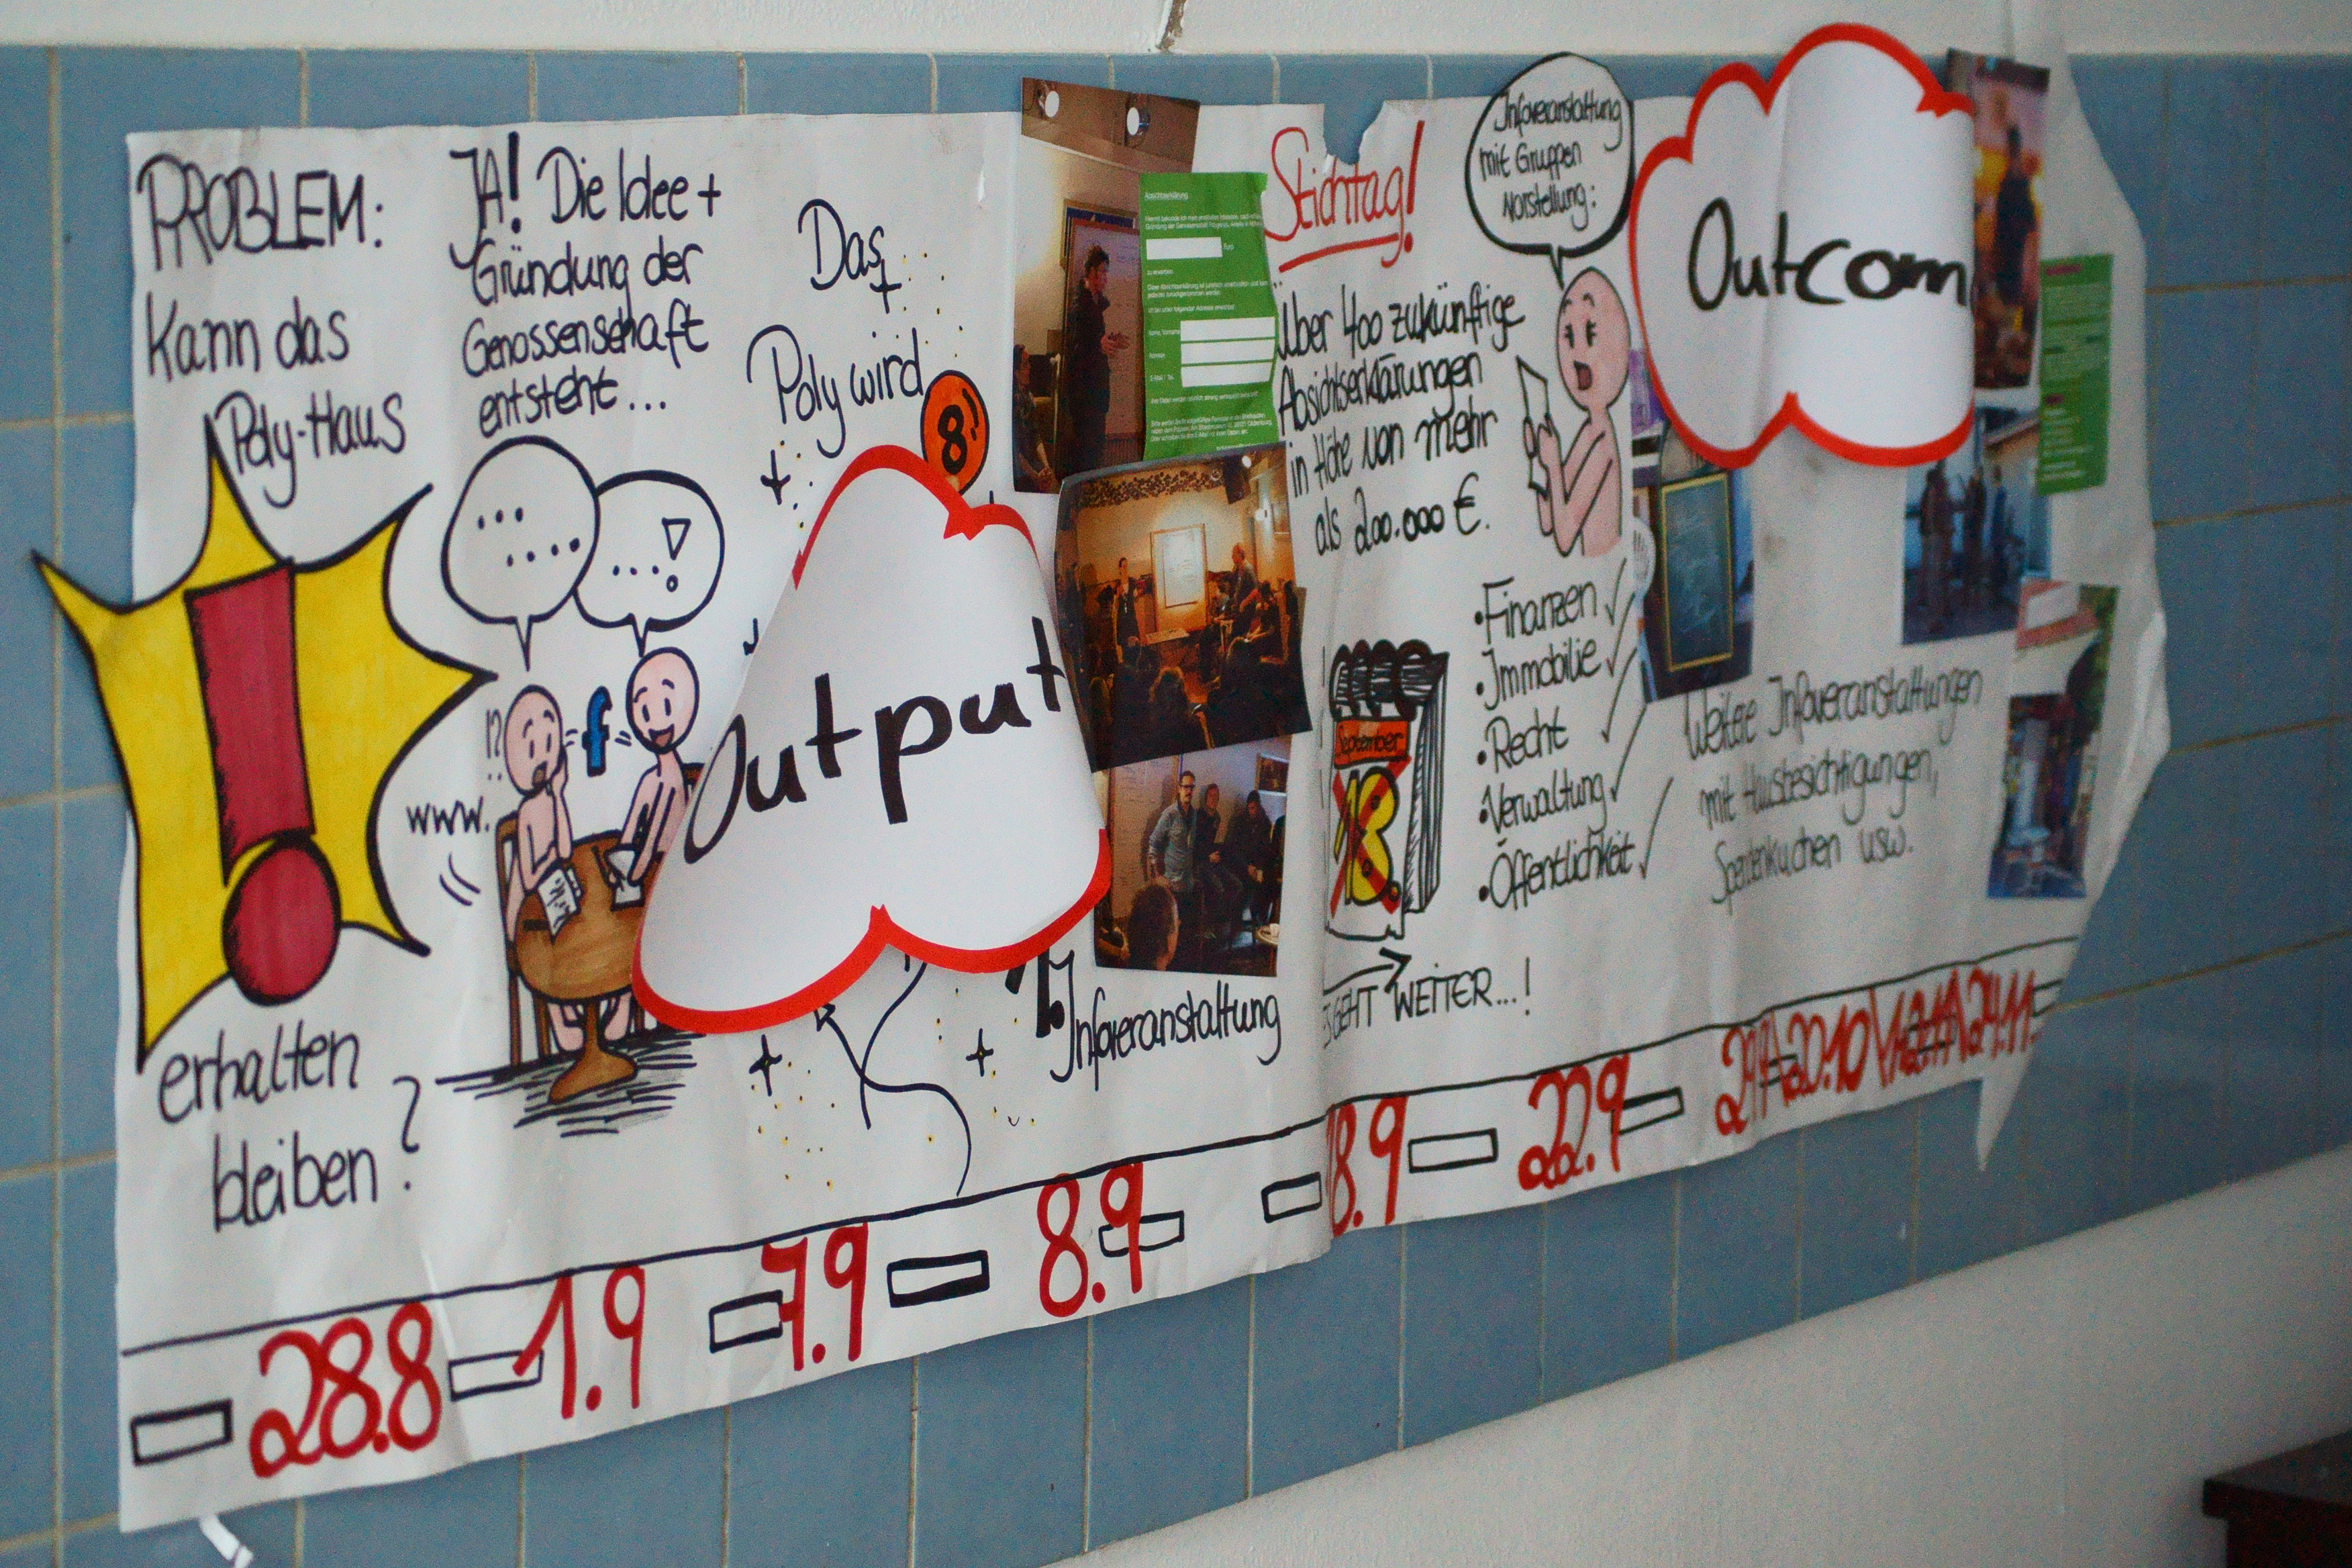 PROBLEM:
Kann das
Poly-Haus
!
erhalten
bleiben?
JA! Die Idee +
Gründung der
Genossenschaft
entsteht...
...
....
...!
!?
f
www.
Das
Poly wird
8
Output
1. Infoveranstaltung
Absichtserklärung
Stichtag!
Über 400 zukünftige
Absichtserklärungen
in Höhe von mehr
als 200.000 €.
September
18.
GEHT WEITER...!
Infoveranstaltung
mit Gruppen
Vorstellung:
• Finanzen ✓
• Immobilie ✓
• Recht ✓
• Verwaltung ✓
• Öffentlichkeit ✓
Outcom
Weitere Infoveranstaltungen
mit Hausbesichtigungen,
Spendenkuchen usw.
28.8
1.9
7.9
8.9
18.9
22.9
20.10
24.11